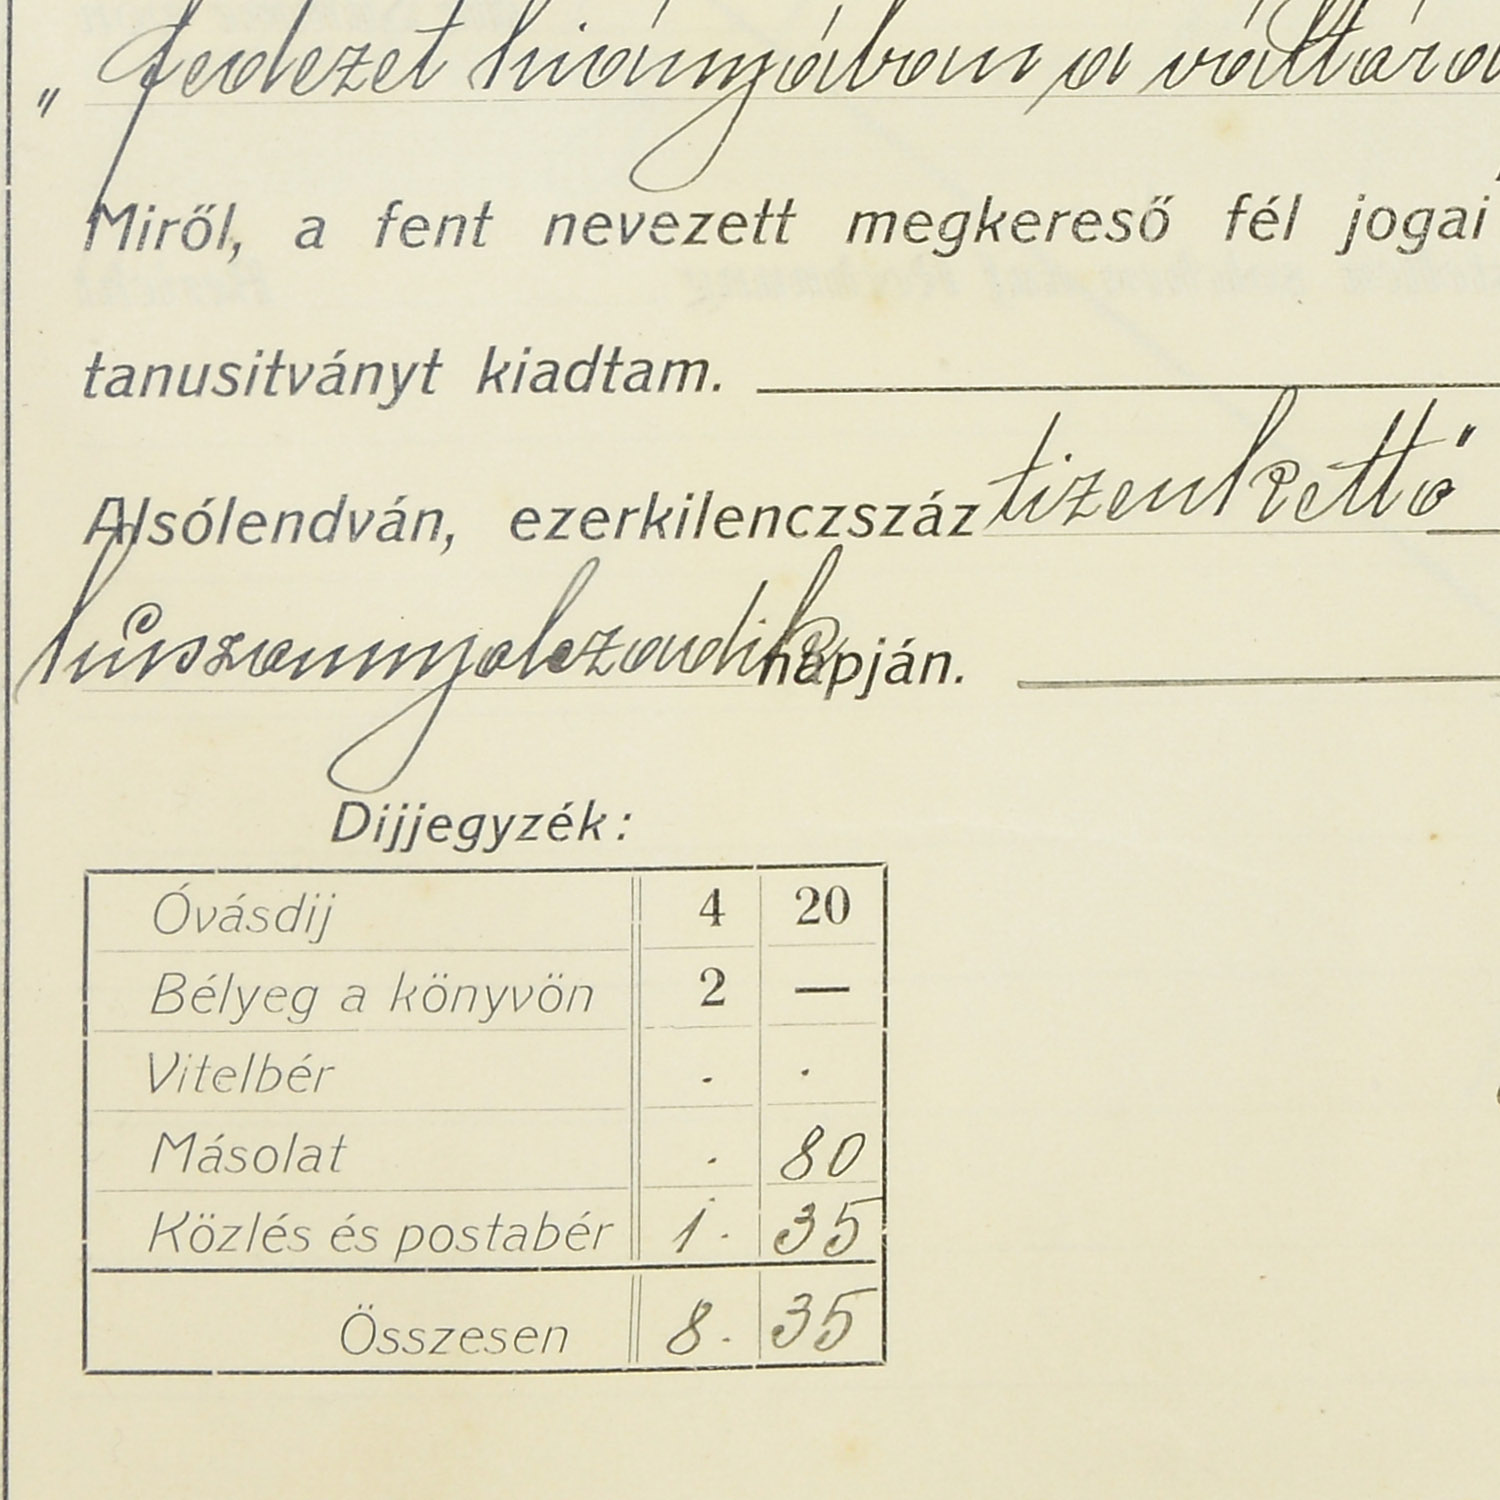 „fedezet hiányában a váltóra
Miről, a fent nevezett megkereső fél jogai
tanusitványt kiadtam.
Alsólendván, ezerkilenczszáz tizenkettő
húszonnyolczadik napján.
Dijjegyzék:
Óvásdij 4 20
Bélyeg a könyvön 2 —
Vitelbér . .
Másolat . 80
Közlés és postabér 1. 35
Összesen 8. 35